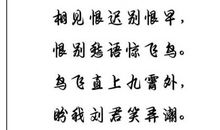 相见恨迟别恨早，
恨别愁语惊飞鸟。
鸟飞直上九霄外，
盼我刘君笑弄潮。